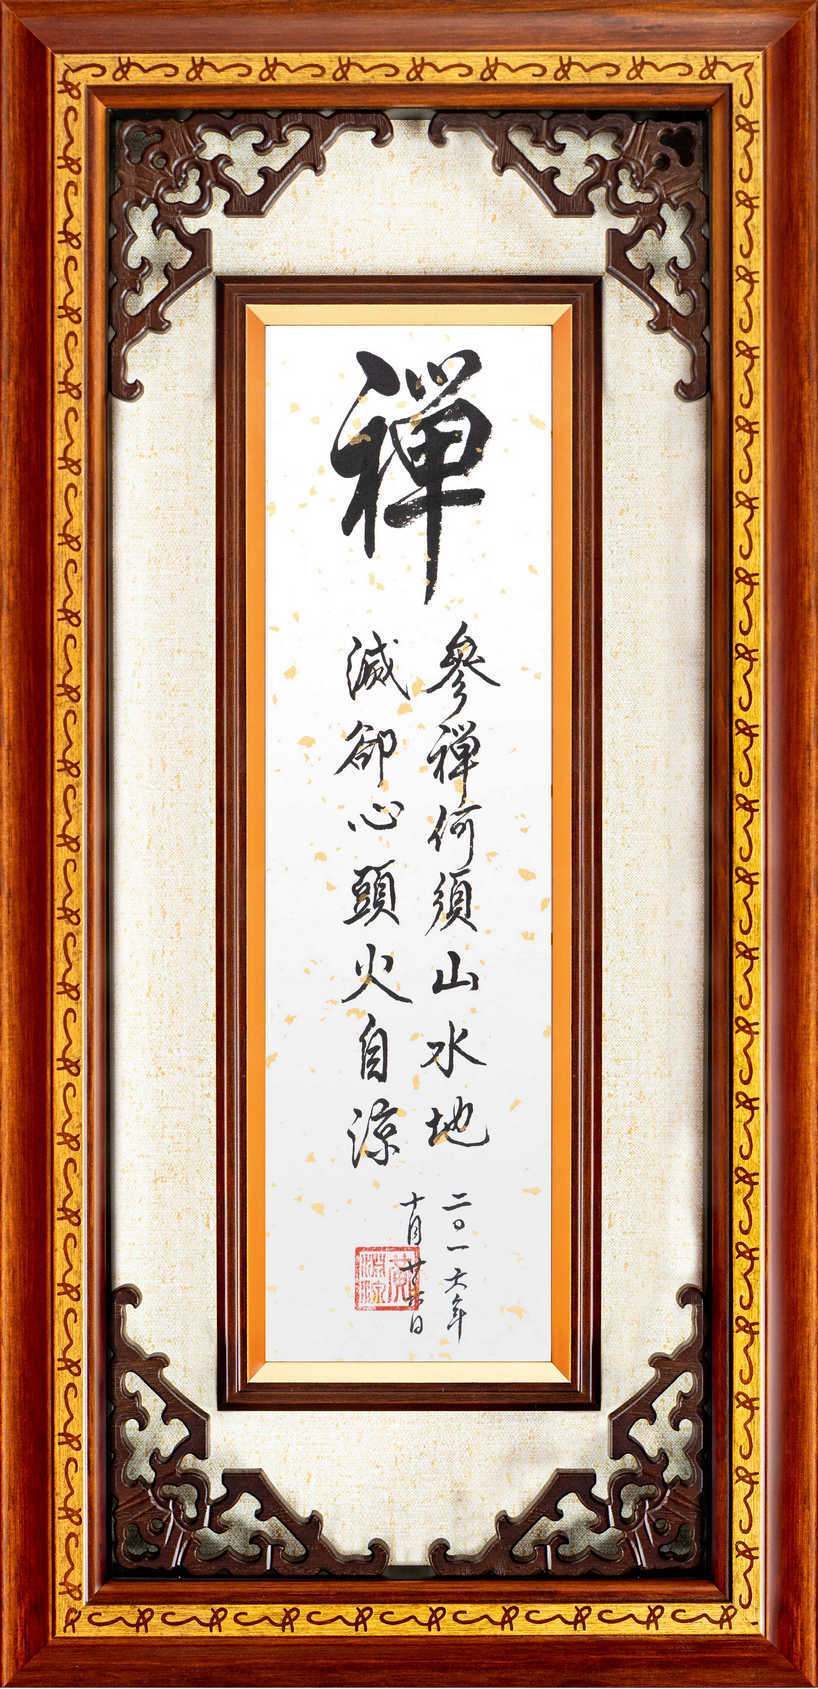 禅
參禅何須山水地
滅卻心頭火自涼
二〇一六年
十月廿六日